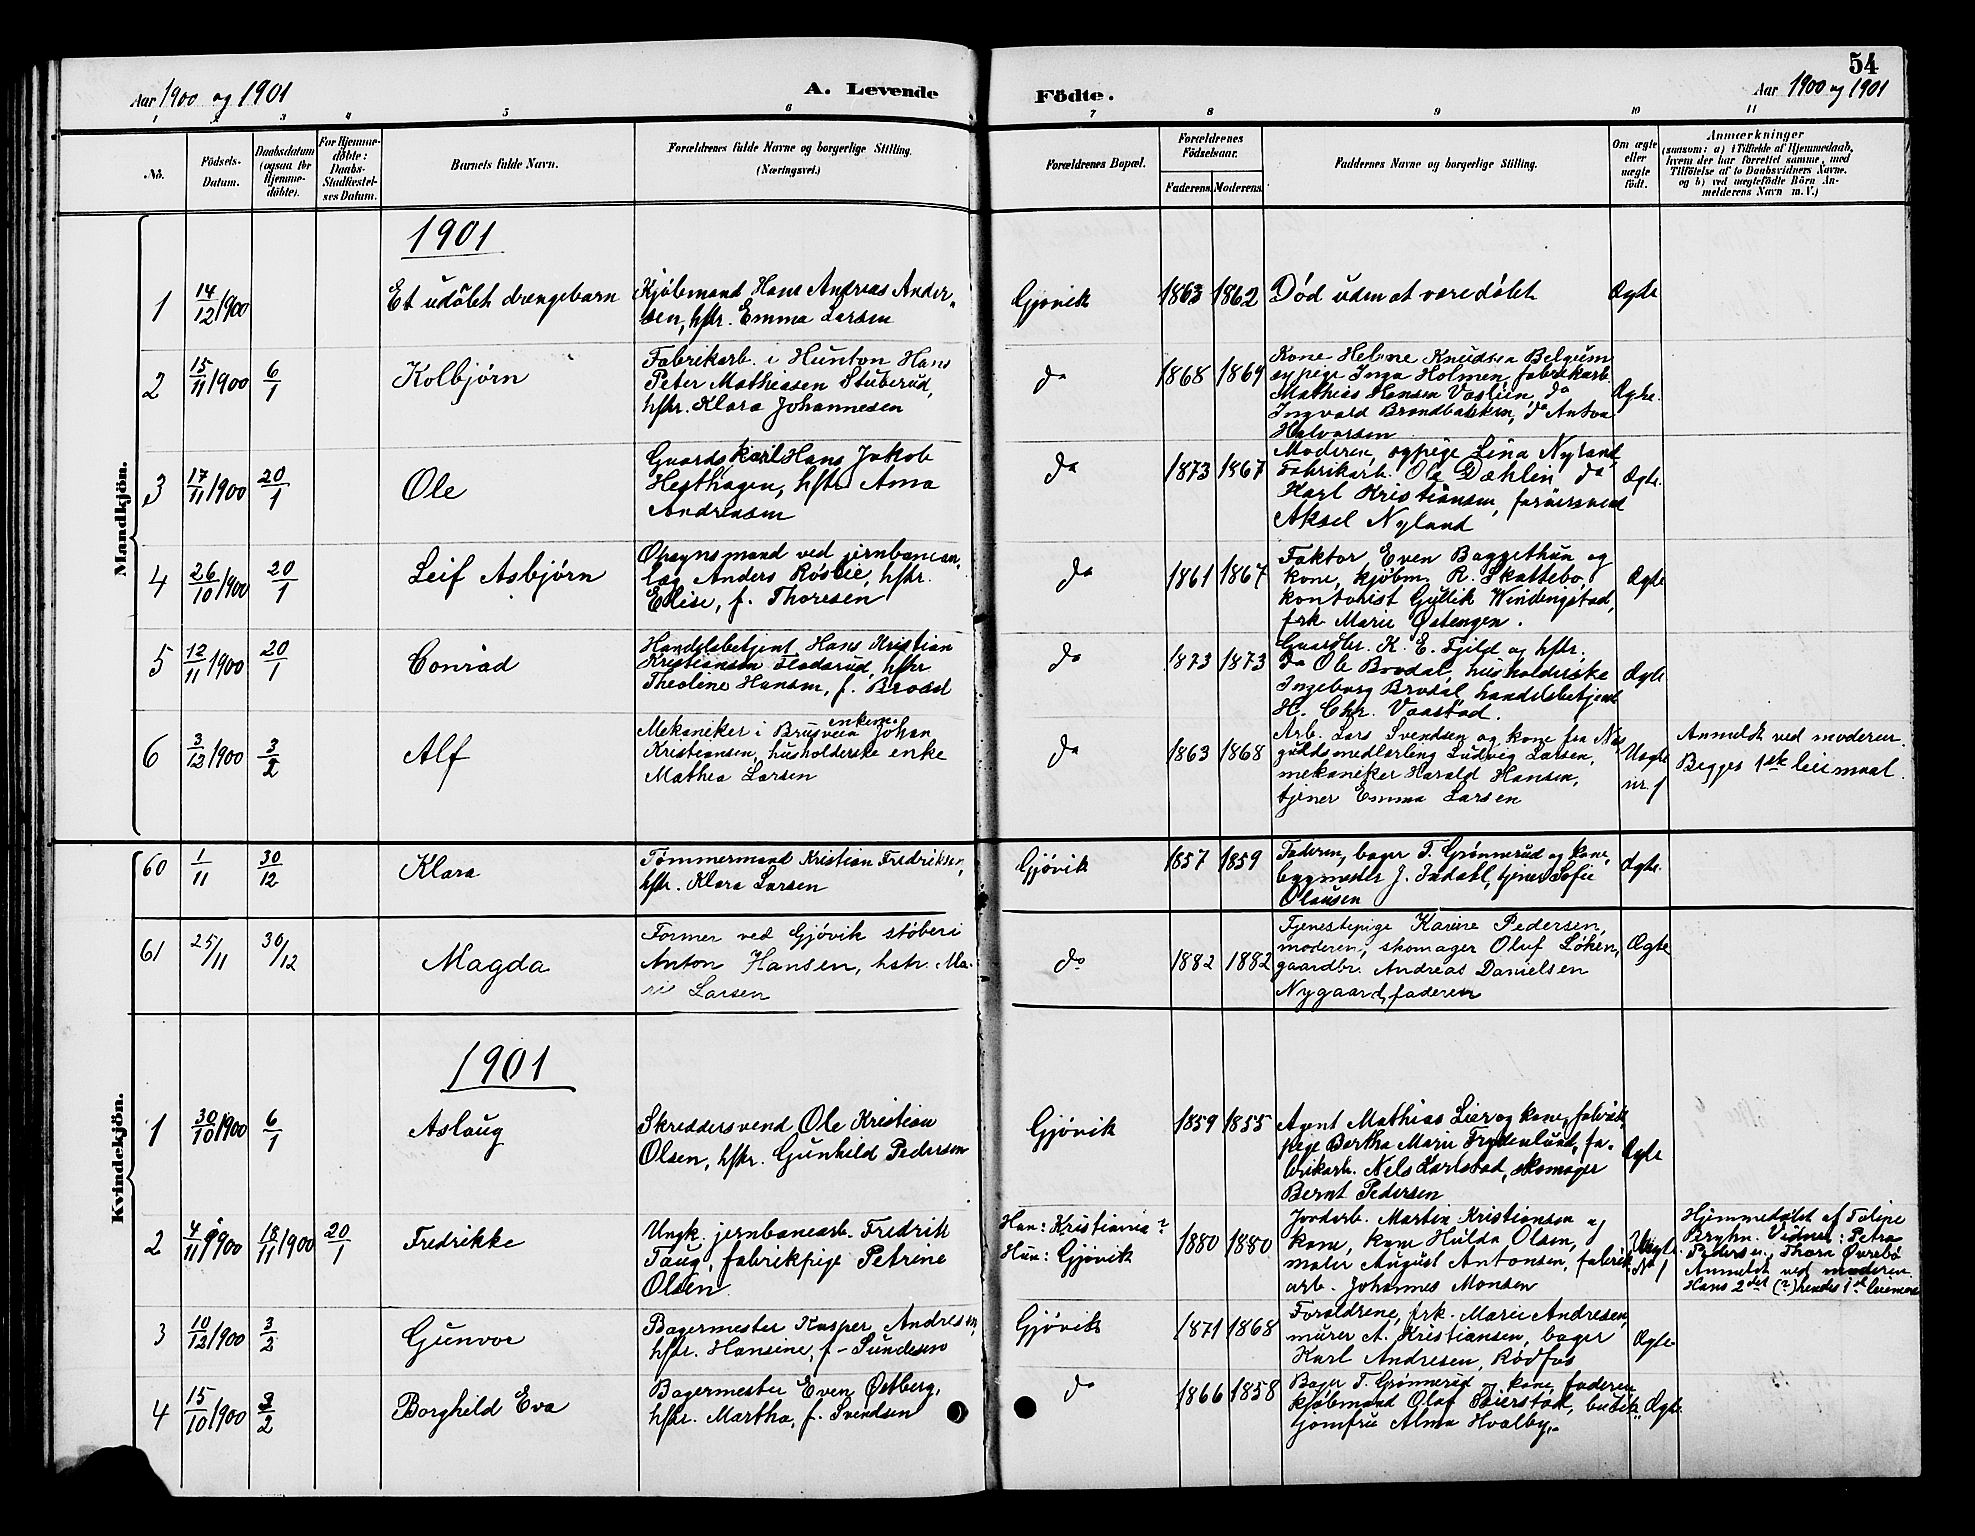 54
Aar 1900 og 1901
A. Levende
Födte.
Aar 1900 og 1901
1 2 3 4 5 6 7 8 9 10 11
No.
Födsels-
Datum.
Daabsdatum
(ogsaa for
Hjemme-
döbte).
For Hjemme-
döbte:
Daabs-
Stadfæstel-
ses Datum.
Barnets fulde Navn.
Forældrenes fulde Navne og borgerlige Stilling.
(Næringsvei.)
Forældrenes Bopæl.
Forældrenes
Födselsaar.
Faderens. Moderens.
Faddernes Navne og borgerlige Stilling.
Om ægte
eller
uægte
født.
Anmærkninger
(saasom: a) i Tilfælde af Hjemmedaab,
hvem der har forrettet samme, med
Tilföielse af to Daabsvidners Navne.
og b) ved uægtefödte Börn An-
melderens Navn m. V.)
Mandkjön.
1901
1
14/12 1900
Et udøbt drengebarn
Kjøbmand Hans Andreas Ander-
sen, hstr. Emma Larsen
Gjøvik
1863 1862
Død uden at være døbt
Ægte
2
15/11 1900
6/1
Kolbjørn
Fabrikarb. i Hunton Hans
Peter Mathiassen Stuberud,
hstr. Klara Johannesen
do
1868 1869
Kone Helene Knudsen Belgum
sypige Inga Holmen, fabrikarb.
Mathias Hansen Vaslien, do
Ingvard Brandbakken, do Anton
Halvorsen
Ægte.
3
17/11 1900
20/1
Ole
Gaardskarl Hans Jakob
Hesthagen, hstr. Anna
Andreasen
do
1873 1867
Moderen, sypige Lina Nyland
Fabrikarb. Ole Dæhlin do
Karl Kristiansen, farversvend
Aksel Nyland
Ægte.
4
26/10 1900
20/1
Leif Asbjørn
Opsynsmand ved jernbanean-
læg Anders Røslie, hstr.
Elise, f. Thoresen
do
1861 1867
Faktor Even Baggethun og
kone, kjøbm. R. Skattebo,
kontorist Gullik Windingstad,
frk. Marie Østengen.
Ægte
5
12/11 1900
20/1
Conrad
Handelsbetjent Hans Kristian
Kristiansen Fladsrud, hstr
Theoline Hansen, f. Brodal
do
1873 1873
Gaardbr. K. E. Fjeld og hstr.
do Ole Brodal, husholderske
Ingeborg Brodal, handelsbetjent
H. Chr. Vaastad.
Ægte
6
3/12 1900
3/2
Alf
enkem.
Mekaniker i Brusveen Johan
Kristiansen, husholderske enke
Mathea Larsen
do
1863 1868
Arb. Lars Svendsen og kone fra Næs
guldsmedlærling Ludvig Larsen,
mekaniker Harald Hansen,
tjener Emma Larsen
Uægte
nr. 1
Anmeldt ved moderen.
Begges 1ste leiermaal.
Kvindekjön.
60
1/11
30/12
Klara
Tømmermand Kristian Fredriksen,
hstr. Klara Larsen
Gjøvik
1857 1859
Faderen, bager T. Grønnerud og kone,
bygmester J. Indahl, tjener Sofie
Olausen
Ægte.
61
25/11
30/12
Magda
Former ved Gjøvik støberi
Anton Hansen, hstr. Ma-
rie Larsen
do
1882 1882
Tjenestepige Karine Pedersen,
moderen, skomager Oluf Løken,
gaardbr. Andreas Danielsen
Nygaard, faderen
Ægte
1901
1
30/10 1900
6/1
Aslaug
Skreddersvend Ole Kristian
Olsen, hstr. Gunhild Pedersen
Gjøvik
1859 1855
Agent Mathias Lier og kone, fabrik-
pige Bertha Marie Frydenlund, fa-
brikarb. Nels Karlstad, skomager
Bernt Pedersen
Ægte
2
4/11 1900
18/11 1900
20/1
Fredrikke
Ungk. jernbanearb. Fredrik
Taug, fabrikpige Petrine
Olsen
Han: Kristiania?
Hun: Gjøvik
1880 1880
Jordarb. Martin Kristiansen og
kone, kone Hulda Olsen,
maler August Antonsen, fabrik-
arb. Johannes Monsen
Uægte.
No 1
Hjemmedøbt af
Vidner: Petra
Pedersen, Thora Øverbø
Anmeldt ved moderen.
Hans 2det (?) hendes 1ste leiermaal
3
10/12 1900
3/2
Gunvor
Bagermester Kasper Andresen,
hstr. Hansine, f. Sundesen
Gjøvik
1871 1868
Forældrene, frk. Marie Andresen,
murer A. Kristiansen, bager
Karl Andresen, Rødfos
Ægte
4
15/10 1900
3/2
Borghild Eva
Bagermester Even Østberg,
hstr. Martha, f. Svendsen
do
1866 1858
Bager T. Grønnerud og kone, faderen
kjøbmand Olaf Seierstad, butik-
jomfru Alma Hvalby.
Ægte